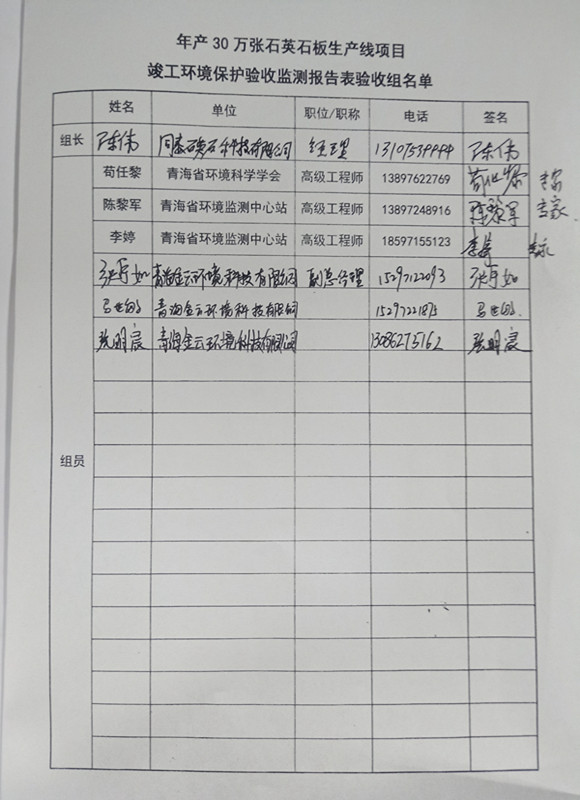 年产 30 万张石英石板生产线项目
竣工环境保护验收监测报告表验收组名单
姓名 单位 职位/职称 电话 签名
组长 陈伟 经理 陈伟
苟任黎 青海省环境科学学会 高级工程师 13897622769 苟任黎 专家
陈黎军 青海省环境监测中心站 高级工程师 13897248916 陈黎军 专家
李婷 青海省环境监测中心站 高级工程师 18597155123 李婷 专家
青海金云环境科技有限公司 副总经理 15297122093
青海金云环境科技有限公司 15297221875
张明宸 青海金云环境科技有限公司 13086275162 张明宸
组员